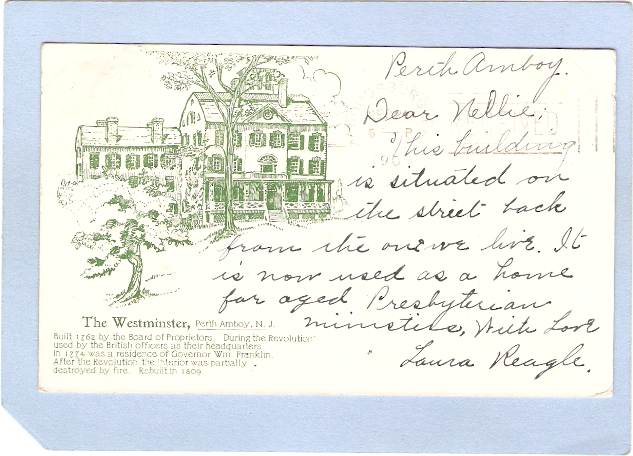 Perth Amboy.
Dear Nellie;
This building
is situated on
the street back
from the one we live. It
is now used as a home
for aged Presbyterian
ministers, With Love
Laura Reagle.
The Westminster, Perth Amboy, N. J.
Built 1762 by the Board of Proprietors. During the Revolution
used by the British officers as their headquarters
In 1774 was a residence of Governor Wm. Franklin.
After the Revolution the interior was partially
destroyed by fire. Rebuilt in 1809